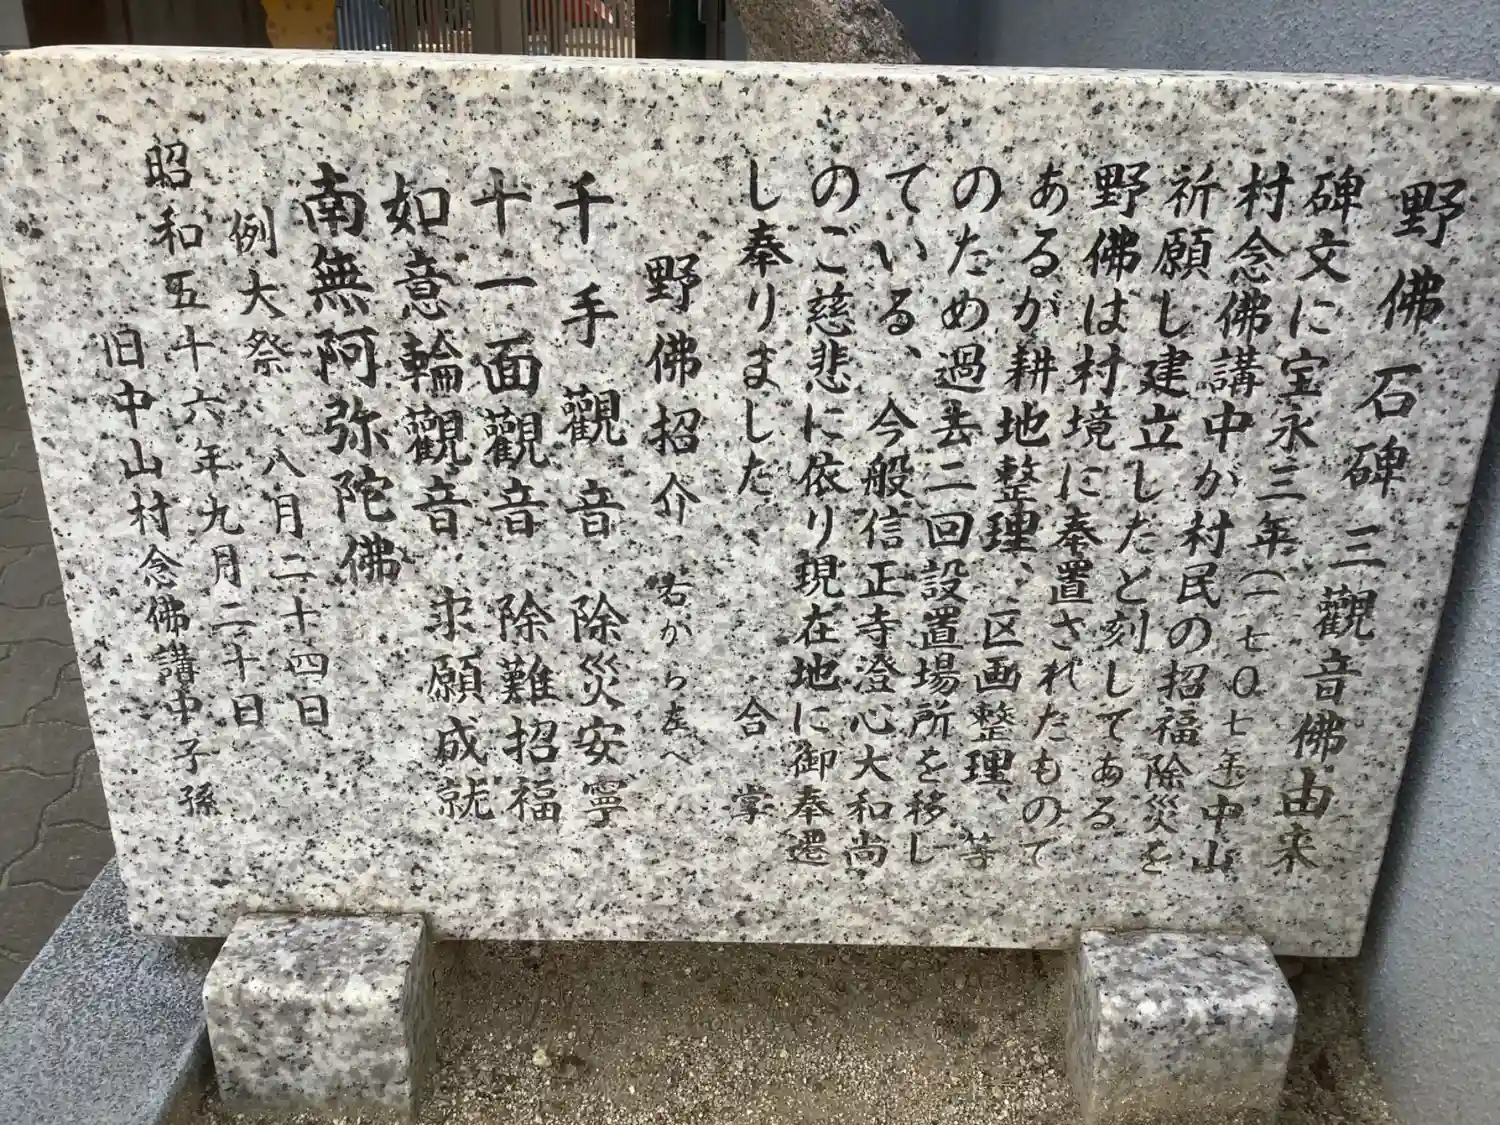 野佛石碑三觀音佛由来
碑文に宝永三年(一七〇七年)中山
村念佛講中が村民の招福除災を
祈願し建立したと刻してある
野佛は村境に奉置されたもので
あるが耕地整理、区画整理、等
のため過去二回設置場所を移し
ている、今般信正寺澄心大和尚
のご慈悲に依り現在地に御奉遷
し奉りました、 合掌
野佛招介 右から左へ
千手觀音 除災安寧
十一面觀音 除難招福
如意輪觀音 求願成就
南無阿弥陀佛
例大祭 八月二十四日
昭和五十六年九月二十日
旧中山村念佛講中子孫